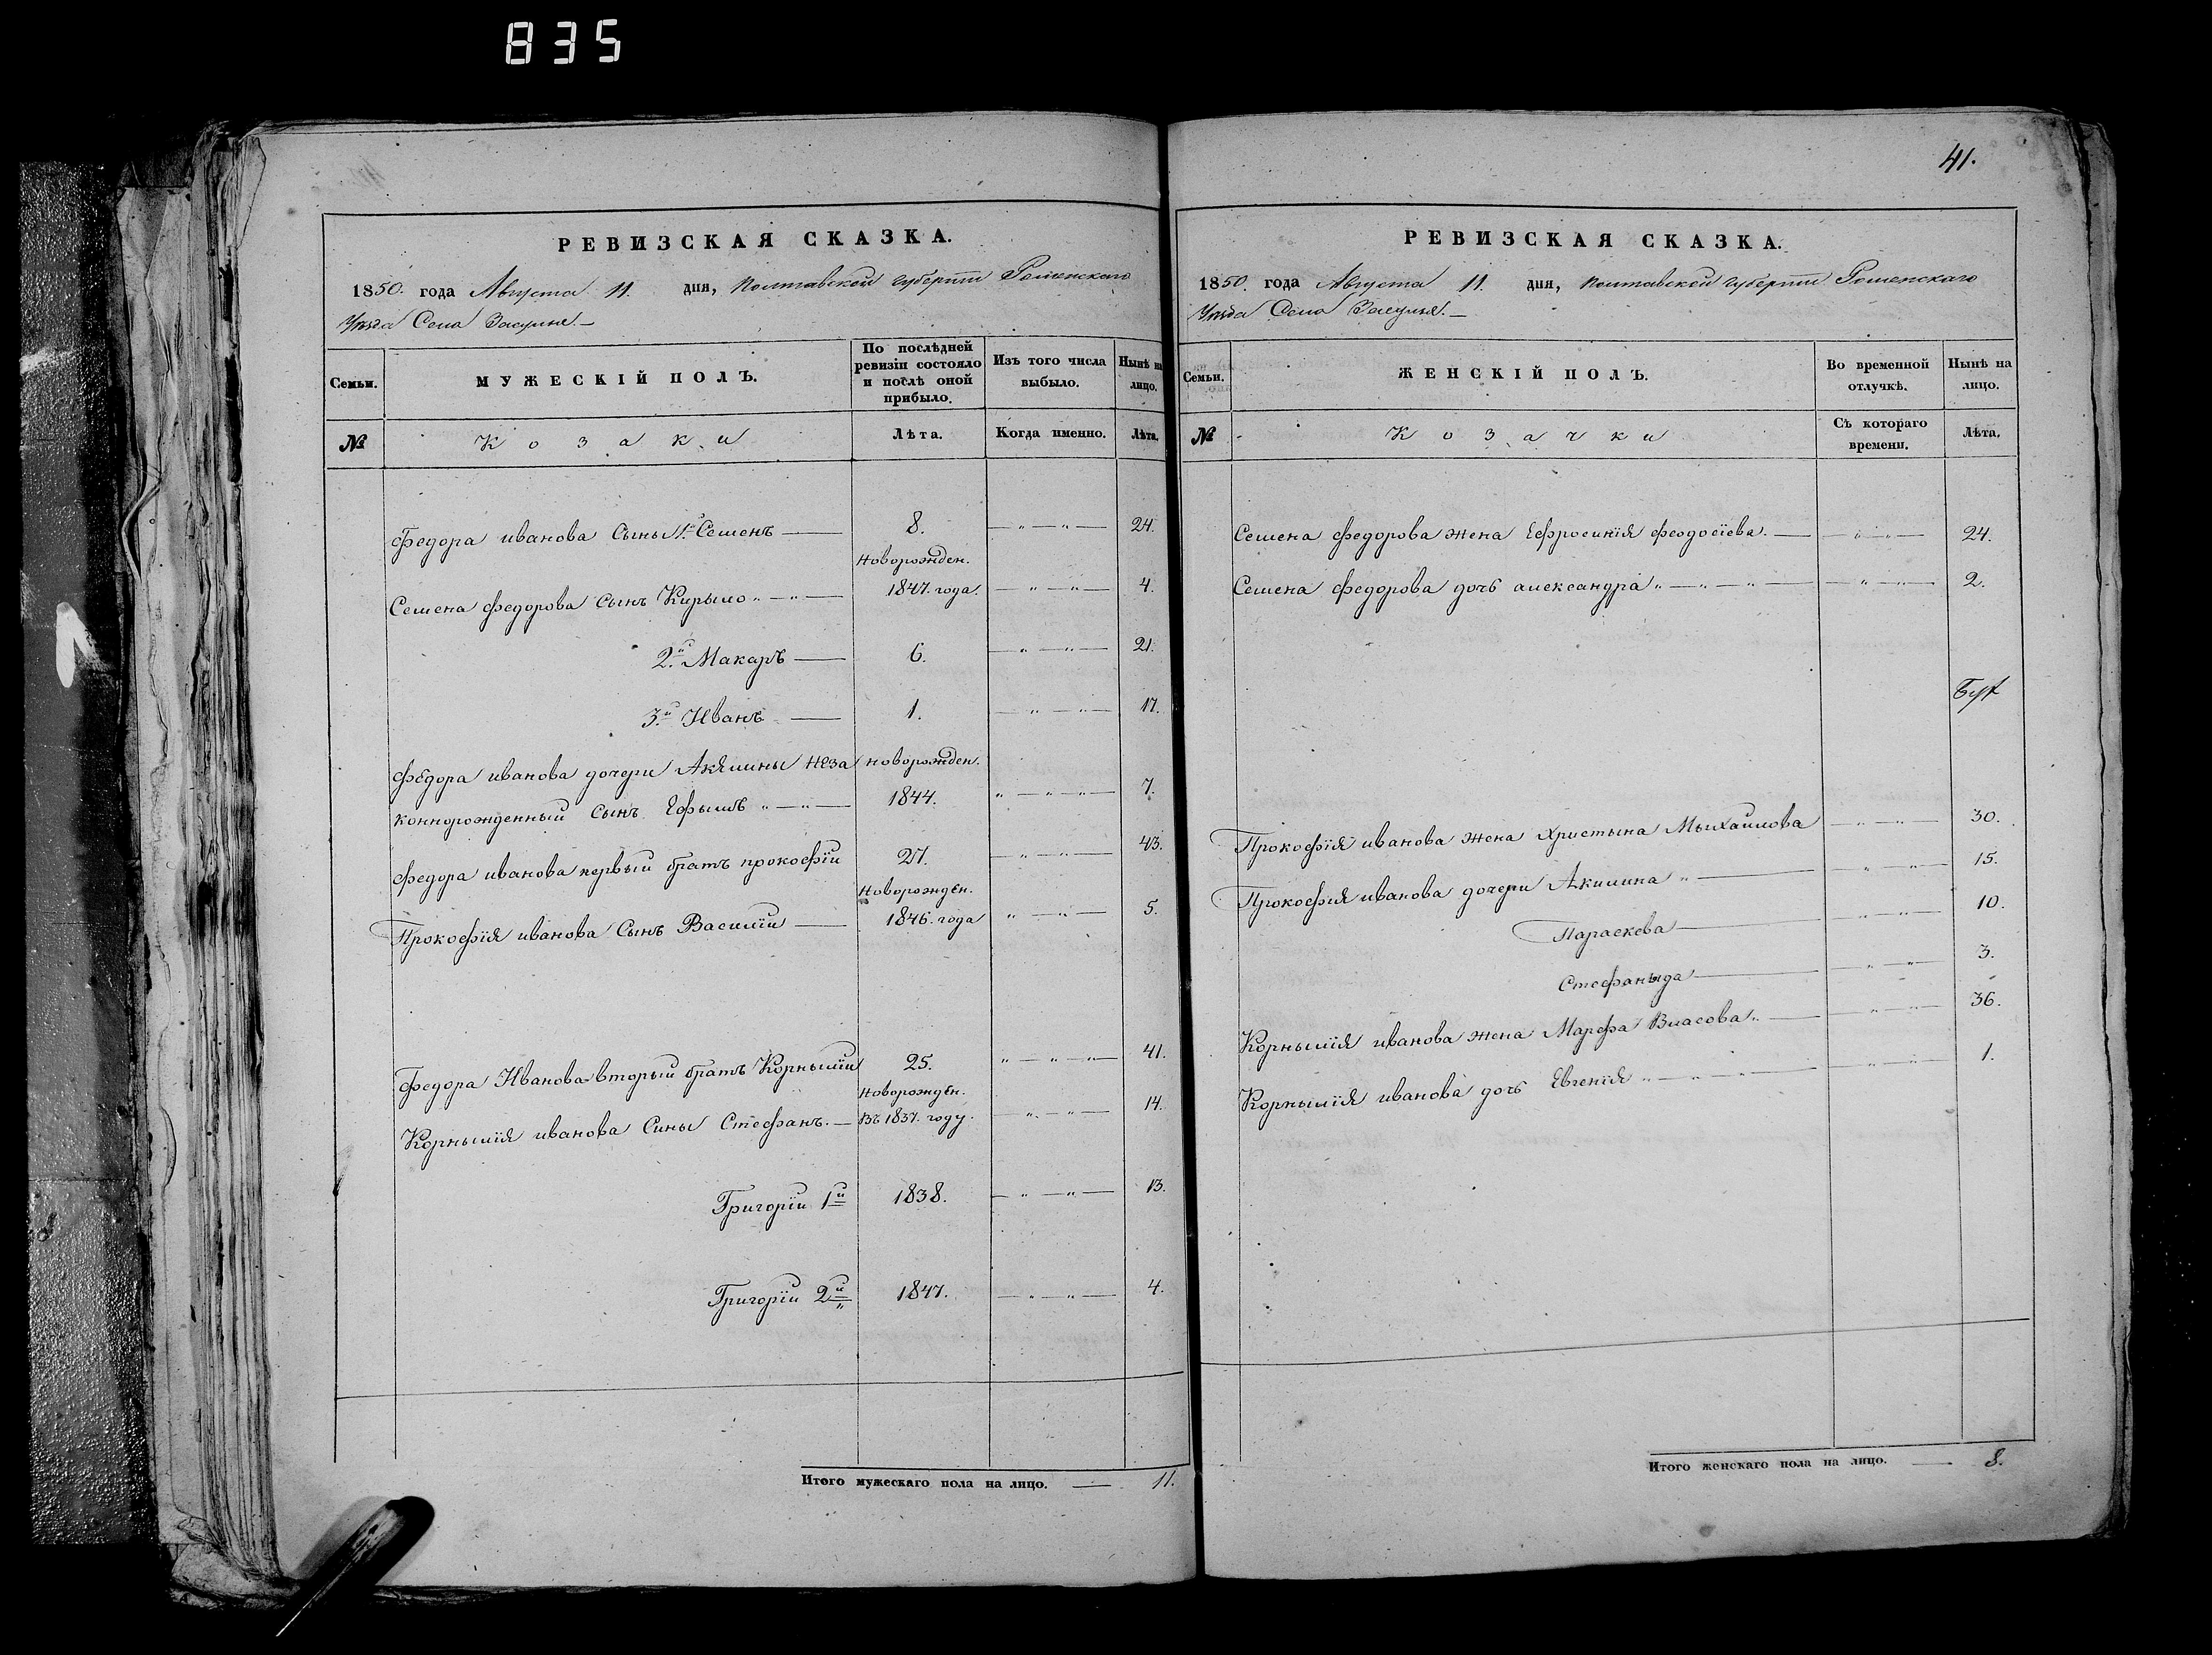 835
РЕВИЗСКАЯ СКАЗКА.
1850. года Августа 11. дня, Полтавской губерніи Роменскаго
Уѣзда Села Засулья.—
Семьи.
МУЖЕСКІЙ ПОЛЪ.
По послѣдней ревизіи состояло и послѣ оной прибыло.
Изъ того числа выбыло.
Нынѣ на лицо.
№
Козаки
Лѣта.
Когда именно.
Лѣта.
Федора иванова Сыны 1й Семенъ — 8. — „ — „ — 24.
Новорожден.
Семена федорова Сынъ Кирыло „ — „ — 1847. года. — „ — „ — 4.
2й Макаръ — 6. — „ — „ — 21.
3й Иванъ — 1. — „ — „ — 17.
Федора иванова дочери Акилины неза новорожден.
коннорожденный Сынъ Ефымъ „ — „ — 1844. „ — „ — „ — 7.
Федора иванова первый братъ прокофій 27. — „ — „ — 43.
Новорожден.
Прокофія иванова Сынъ Василій — 1846. года „ — „ — 5.
Федора Иванова вторый братъ Корнылій 25. „ — „ — „ — 41.
Новорожден.
Корнылія иванова Сины Стефанъ. — Въ 1837. году. — „ — „ — 14.
Григорій 1й 1838. — „ — „ — 13.
Григорій 2й 1847. — „ — „ — 4.
Итого мужескаго пола на лицо. — 11.
41.
РЕВИЗСКАЯ СКАЗКА.
1850. года Августа 11. дня, Полтавской губерніи Роменскаго
Уѣзда Села Засулья.—
Семьи.
ЖЕНСКІЙ ПОЛЪ.
Во временной отлучкѣ.
Нынѣ на лицо.
№
Козачки
Съ котораго времени.
Лѣта.
Семена федорова жена Ефросинія феодосіева. — — „ — „ — 24.
Семена федорова дочь александра „ — „ — „ — — „ — „ — 2.
Прокофія иванова жена Христына Мыхайлова — „ — „ — 30.
Прокофія иванова дочери Акилина „ — „ — „ 15.
Параскева — — „ — „ — 10.
Стефаныда — — „ — „ 3.
Корнылія иванова жена Марфа Власова „ — — „ — „ — 36.
Корнылія иванова дочь Евгенія „ — „ — „ — — „ — „ — 1.
Итого женскаго пола на лицо. — 8.